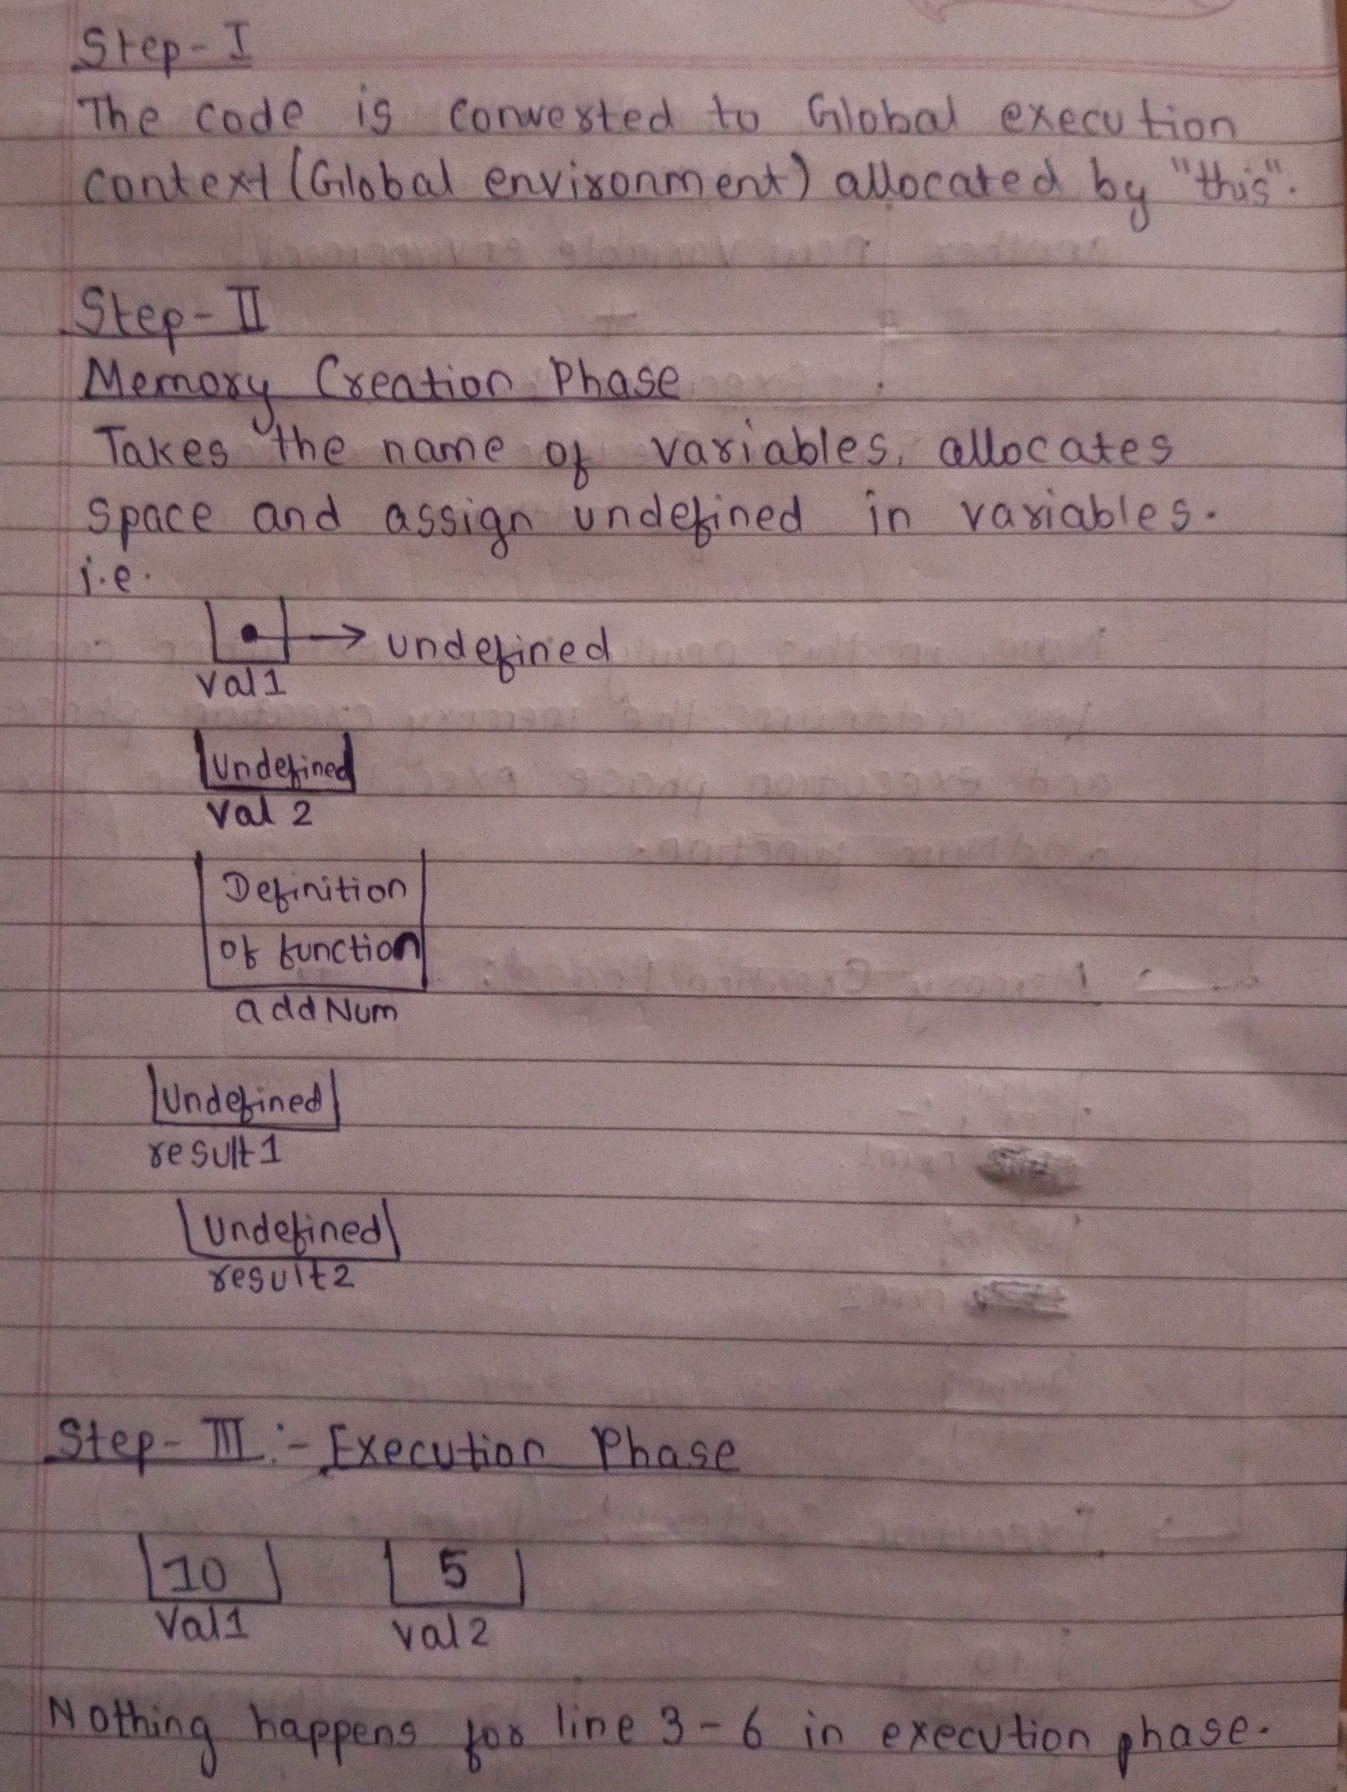 Step-I
The code is converted to Global execution
context (Global environment) allocated by "this".
Step-II
Memory Creation Phase
Takes the name of variables, allocates
space and assign undefined in variables.
i.e.
undefined
val1
Undefined
val 2
Definition
of function
addNum
Undefined
result1
Undefined
result2
Step-III:- Execution Phase
10 5
Val1 val2
Nothing happens for line 3-6 in execution phase.